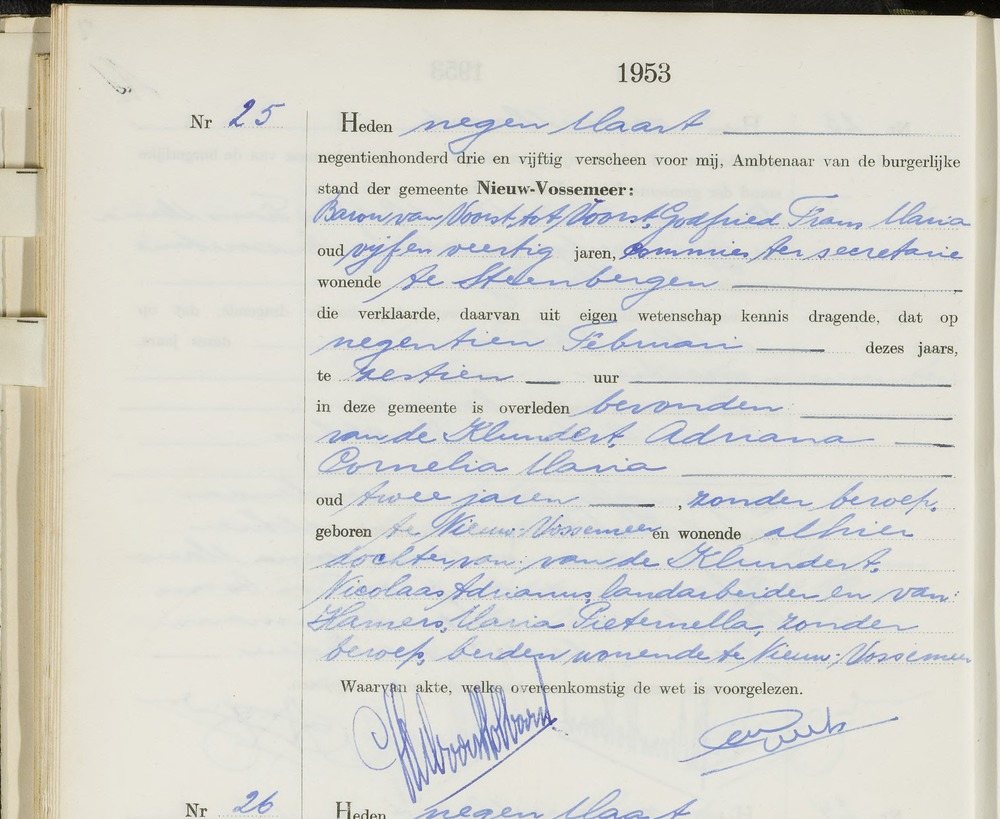 1953
Nr 25
Heden negen Maart
negentienhonderd drie en vijftig verscheen voor mij, Ambtenaar van de burgerlijke
stand der gemeente Nieuw-Vossemeer:
Baron van Voorst tot Voorst, Godfried Frans Maria
oud vijf en veertig jaren, commies ter secretarie
wonende te Steenbergen
die verklaarde, daarvan uit eigen wetenschap kennis dragende, dat op
negentien Februari dezes jaars,
te zestien uur
in deze gemeente is overleden bevonden
van de Klundert, Adriana
Cornelia Maria
oud twee jaren, zonder beroep,
geboren te Nieuw-Vossemeer en wonende alhier
dochter van: van de Klundert,
Nicolaas Adrianus, landarbeider en van:
Hamers, Maria Pieternella, zonder
beroep, beiden wonende te Nieuw-Vossemeer
Waarvan akte, welke overeenkomstig de wet is voorgelezen.
Nr 26
Heden negen Maart